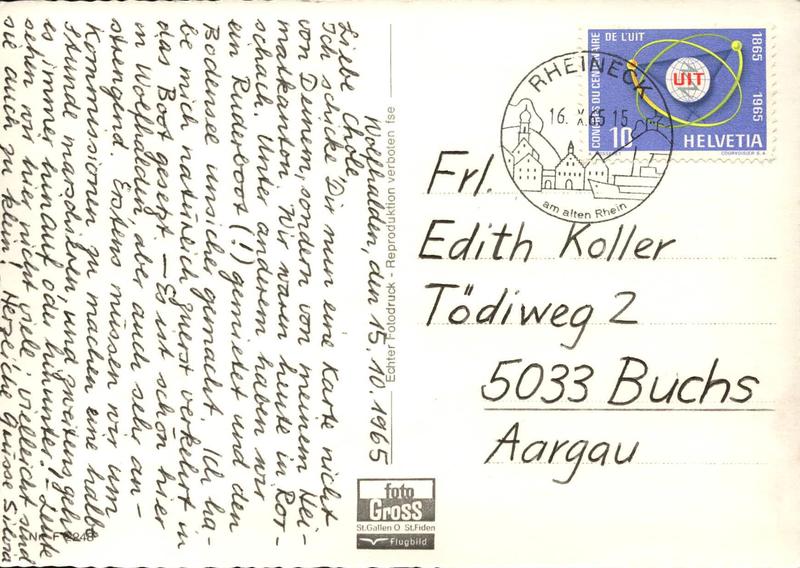 Wolfhalden, den 15.10.1965
Liebe Chole,
Ich schicke Dir nun eine Karte nicht
von Deinem, sondern von meinem Hei-
matkanton. Wir waren heute in Ror-
schach. Unter anderem haben wir
ein Ruderboot (!) gemietet und den
Bodensee unsicher gemacht. Ich ha-
be mich natürlich zuerst verkehrt in
das Boot gesetzt – Es ist schön hier
in Wolfhalden, aber auch sehr an-
strengend. Erstens müssen wir um
Kommissionen zu machen eine halbe
Stunde marschieren, und zweitens geht
es immer hinauf oder hinunter! – Leute
sehen wir hier nicht viele, vielleicht sind
sie auch zu klein! Herzliche Grüsse Silvia
Echter Fotodruck - Reproduktion verboten
foto
GROSS
St.Gallen O St.Fiden
Flugbild
CONGRÈS DU CENTENAIRE
DE L'UIT
1865
1965
UIT
10
HELVETIA
COURVOISIER S.A.
RHEINECK
16. X. 65 15
am alten Rhein
Frl.
Edith Koller
Tödiweg 2
5033 Buchs
Aargau